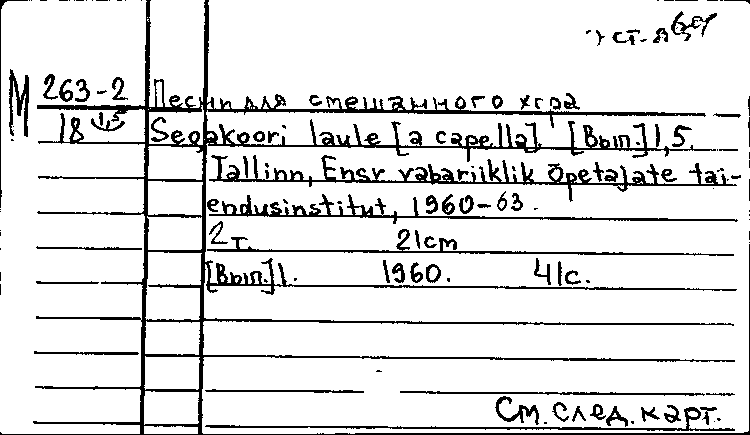 ст. я
М 263-2 Песни для смешанного хора
18 1,5 Segakoori laule [a capella]. [Вып.] 1,5.
Tallinn, Ensv vabariiklik õpetajate tai-
endusinstitut, 1960-63.
2 т. 21cm
[Вып.] 1. 1960. 41с.
См. след. карт.